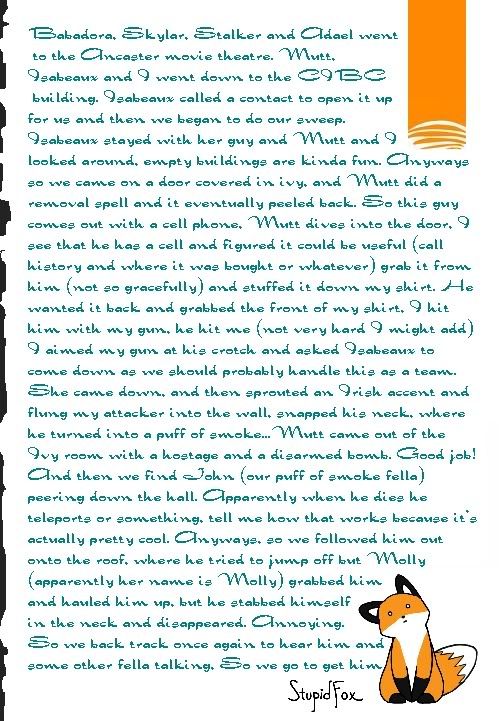 Babadora, Skylar, Stalker and Adael went
to the Ancaster movie theatre. Mutt,
Isabeaux and I went down to the CIBC
building. Isabeaux called a contact to open it up
for us and then we began to do our sweep.
Isabeaux stayed with her guy and Mutt and I
looked around, empty buildings are kinda fun. Anyways
so we came on a door covered in ivy, and Mutt did a
removal spell and it eventually peeled back. So this guy
comes out with a cell phone, Mutt dives into the door, I
see that he has a cell and figured it could be useful (call
history and where it was bought or whatever) grab it from
him (not so gracefully) and stuffed it down my shirt. He
wanted it back and grabbed the front of my shirt, I hit
him with my gun, he hit me (not very hard I might add)
I aimed my gun at his crotch and asked Isabeaux to
come down as we should probably handle this as a team.
She came down, and then sprouted an Irish accent and
flung my attacker into the wall, snapped his neck, where
he turned into a puff of smoke... Mutt came out of the
Ivy room with a hostage and a disarmed bomb. Good job!
And then we find John (our puff of smoke fella)
peering down the hall. Apparently when he dies he
teleports or something, tell me how that works because it's
actually pretty cool. Anyways, so we followed him out
onto the roof, where he tried to jump off but Molly
(apparently her name is Molly) grabbed him
and hauled him up, but he stabbed himself
in the neck and disappeared. Annoying.
So we back track once again to hear him and
some other fella talking, So we go to get him
StupidFox